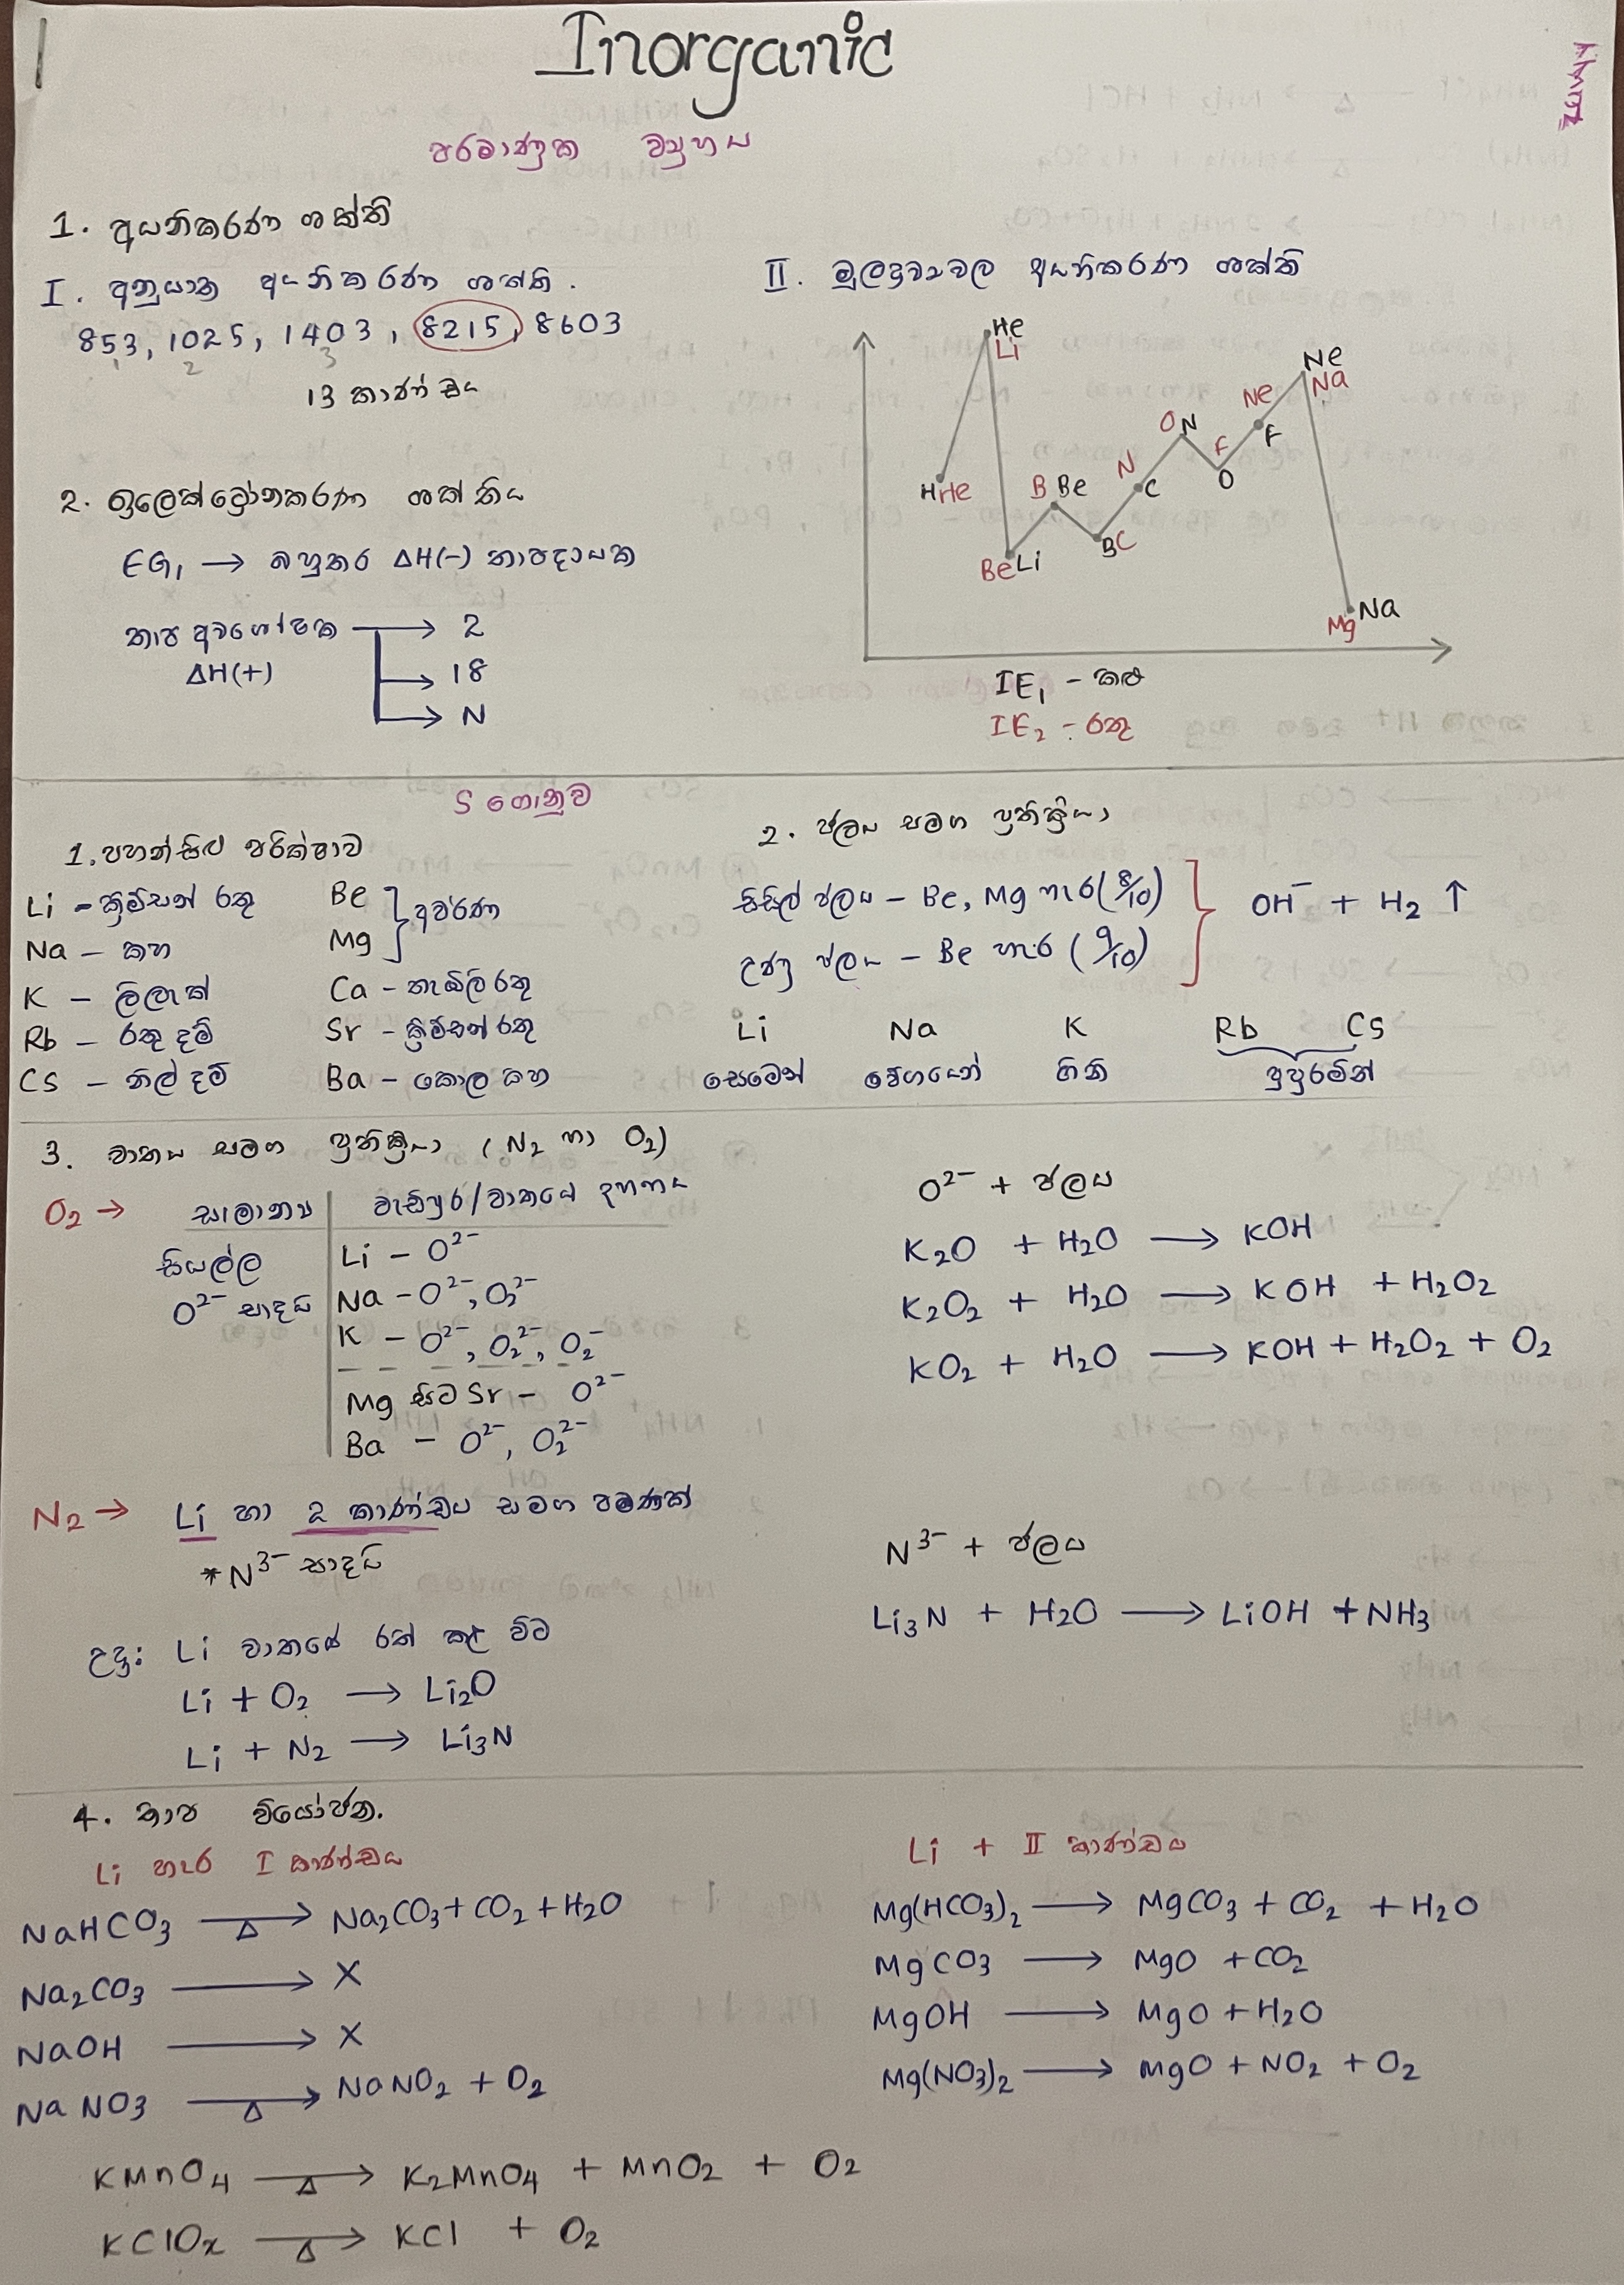 1
Inorganic
පරමාණුක ව්‍යුහය
1. අයනිකරණ ශක්ති
I. අනුයාත අයනිකරණ ශක්ති.
853, 1025, 1403, 8215, 8603
1 2 3
13 කාණ්ඩය
II. මූලද්‍රව්‍යවල අයනිකරණ ශක්ති
He
Li
Ne
Na
Ne
F
O N
F
O
N
C
H He
B Be
B C
Be Li
Na
Mg
IE₁ - කළු
IE₂ - රතු
2. ඉලෙක්ට්‍රෝනකරණ ශක්තිය
EG₁ → බහුතර ΔH(-) තාපදායක
තාප අවශෝෂක → 2
ΔH(+) → 18
→ N
S ගොනුව
1. පහන්සිළු පරික්ෂාව
Li - ක්‍රිම්සන් රතු
Na - කහ
K - ලිලැක්
Rb - රතු දම්
Cs - නිල් දම්
Be
Mg } අවර්ණ
Ca - තැඹිලි රතු
Sr - ක්‍රිම්සන් රතු
Ba - කොල කහ
2. ජලය සමග ප්‍රතික්‍රියා
සිසිල් ජලය - Be, Mg හැර (8/10)
උණු ජලය - Be හැර (9/10)
} OH⁻ + H₂ ↑
Li Na K Rb Cs
සෙමෙන් වේගයෙන් ගිනි පුපුරමින්
3. වාතය සමග ප්‍රතික්‍රියා (N₂ හා O₂)
O₂ → සාමාන්‍ය | වැඩිපුර/වාතයේ දහනය
සියල්ල
O²⁻ සාදයි
Li - O²⁻
Na - O²⁻, O₂²⁻
K - O²⁻, O₂²⁻, O₂⁻
Mg සිට Sr - O²⁻
Ba - O²⁻, O₂²⁻
O²⁻ + ජලය
K₂O + H₂O → KOH
K₂O₂ + H₂O → KOH + H₂O₂
KO₂ + H₂O → KOH + H₂O₂ + O₂
N₂ → Li හා 2 කාණ්ඩය සමග පමණක්
*N³⁻ සාදයි
උදා: Li වාතයේ රත් කළ විට
Li + O₂ → Li₂O
Li + N₂ → Li₃N
N³⁻ + ජලය
Li₃N + H₂O → LiOH + NH₃
4. තාප වියෝජන.
Li හැර I කාණ්ඩය
NaHCO₃ →Δ Na₂CO₃ + CO₂ + H₂O
Na₂CO₃ → X
NaOH → X
NaNO₃ →Δ NaNO₂ + O₂
Li + II කාණ්ඩය
Mg(HCO₃)₂ → MgCO₃ + CO₂ + H₂O
MgCO₃ → MgO + CO₂
MgOH → MgO + H₂O
Mg(NO₃)₂ → MgO + NO₂ + O₂
KMnO₄ →Δ K₂MnO₄ + MnO₂ + O₂
KClOₓ →Δ KCl + O₂